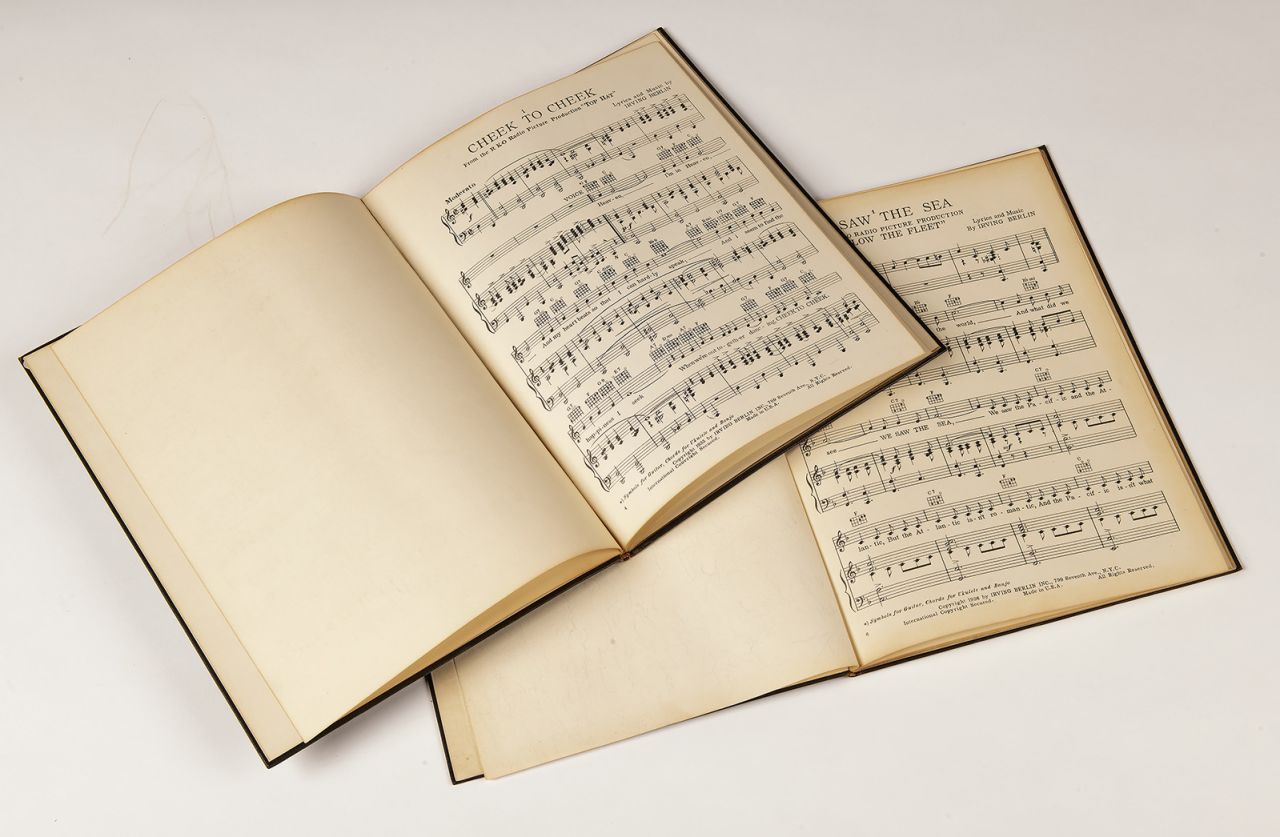 1
CHEEK TO CHEEK
From the RKO Radio Picture Production "TOP HAT"
Lyrics and Music by
IRVING BERLIN
Moderato
VOICE
Heav - en,
I'm in Heav - en,
And my heart beats so that I can hard - ly speak;
And I seem to find the
hap - pi - ness I seek
When we're out to - geth - er danc - ing CHEEK TO CHEEK.
*) Symbols for Guitar, Chords for Ukulele and Banjo
Copyright 1935 by IRVING BERLIN INC., 799 Seventh Ave., N.Y.C.
International Copyright Secured. Made in U.S.A. All Rights Reserved.
4
SAW THE SEA
RADIO PICTURE PRODUCTION
LOW THE FLEET"
Lyrics and Music
By IRVING BERLIN
the world, And what did we
see WE SAW THE SEA, We saw the Pa - cif - ic and the At -
lan - tic, But the At - lan - tic is - n't ro - man - tic, And the Pa - cif - ic is - n't what
*) Symbols for Guitar, Chords for Ukulele and Banjo
Copyright 1936 by IRVING BERLIN INC., 799 Seventh Ave., N.Y.C.
International Copyright Secured. Made in U.S.A. All Rights Reserved.
6